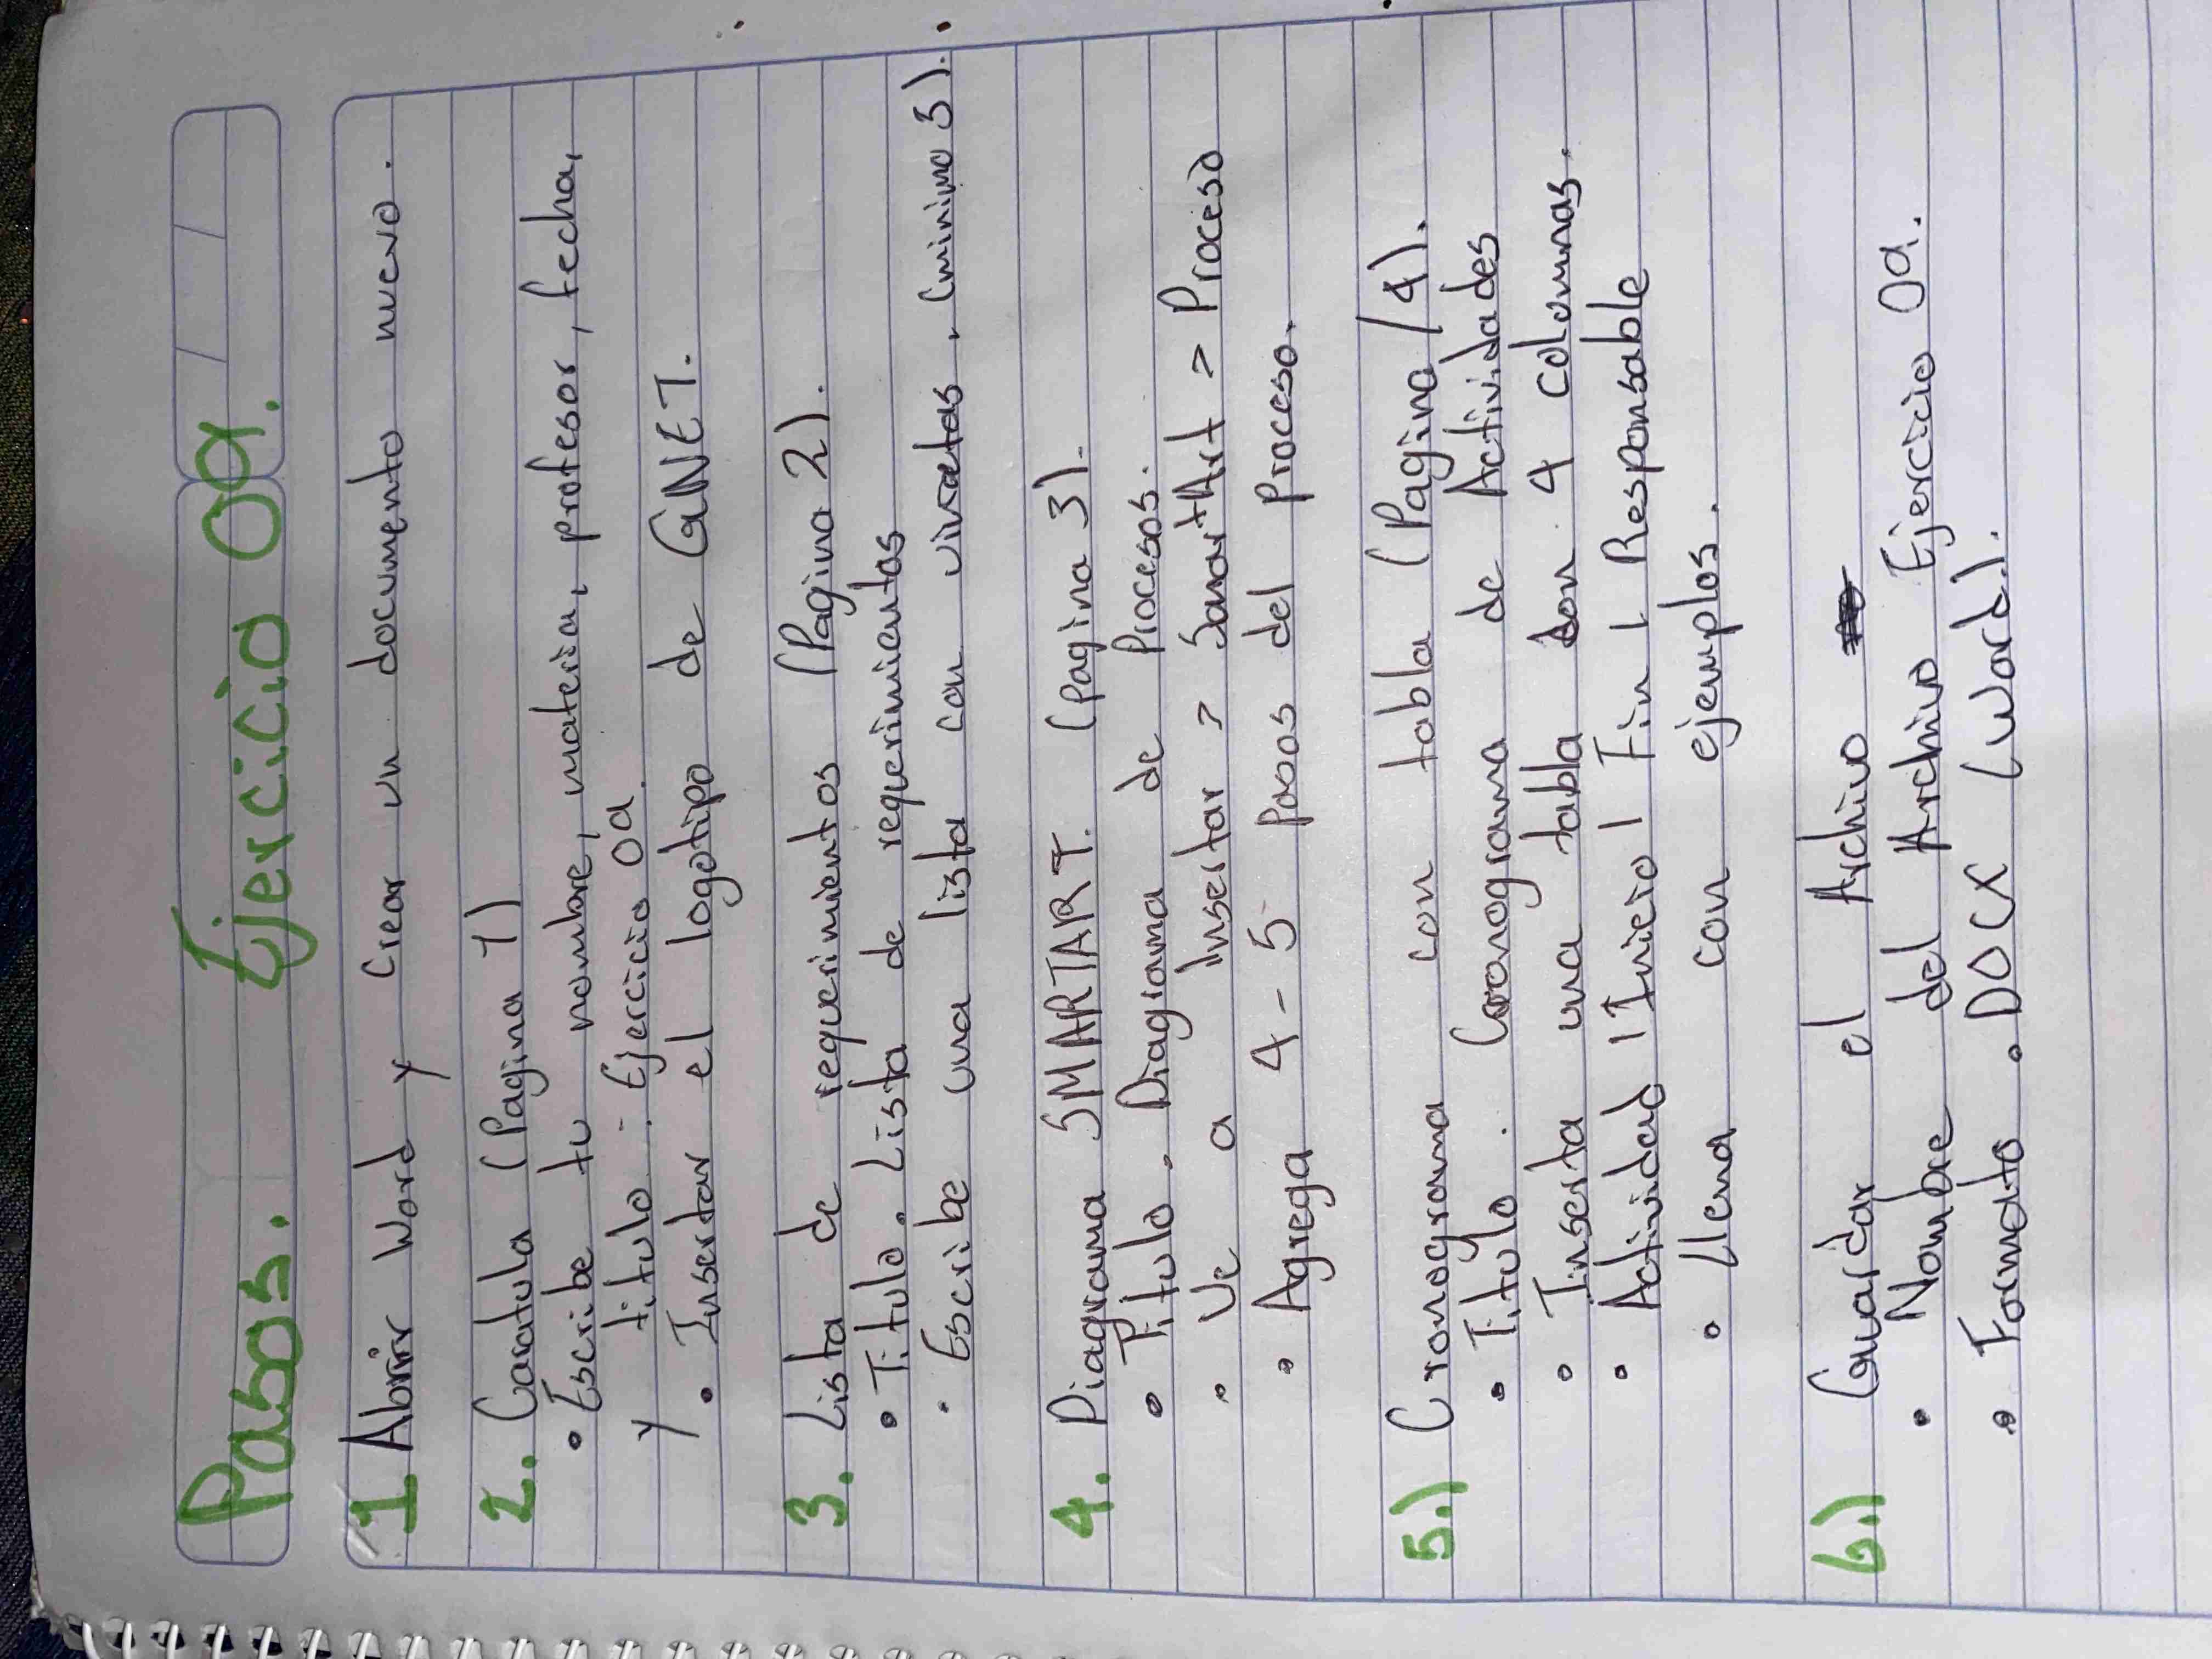 Pasos. Ejercicio 09.
1 Abrir Word y Crear un documento nuevo.
2. Caratula (Pagina 1)
• Escribe tu nombre, materia, profesor, fecha,
y titulo: Ejercicio 09.
• Insertar el logotipo de GUNET.
3. Lista de requerimientos (Pagina 2).
• Titulo. Lista de requerimientos
• Escribe una lista con viñetas. (minimo 3).
4. Diagrama SMARTART. (pagina 3).
• Titulo. Diagrama de Procesos.
• Ve a Insertar > SmartArt > Proceso
• Agrega 4-5 pasos del proceso.
5.) Cronograma con tabla (Pagina 4).
• Titulo. Cronograma de Actividades
• Inserta una tabla con 4 columnas.
• Actividad | Inicio | Fin | Responsable
• Llena con ejemplos.
6.) Guardar el Archivo
• Nombre del Archivo Ejercicio 09.
• Formato .DOCX (Word).